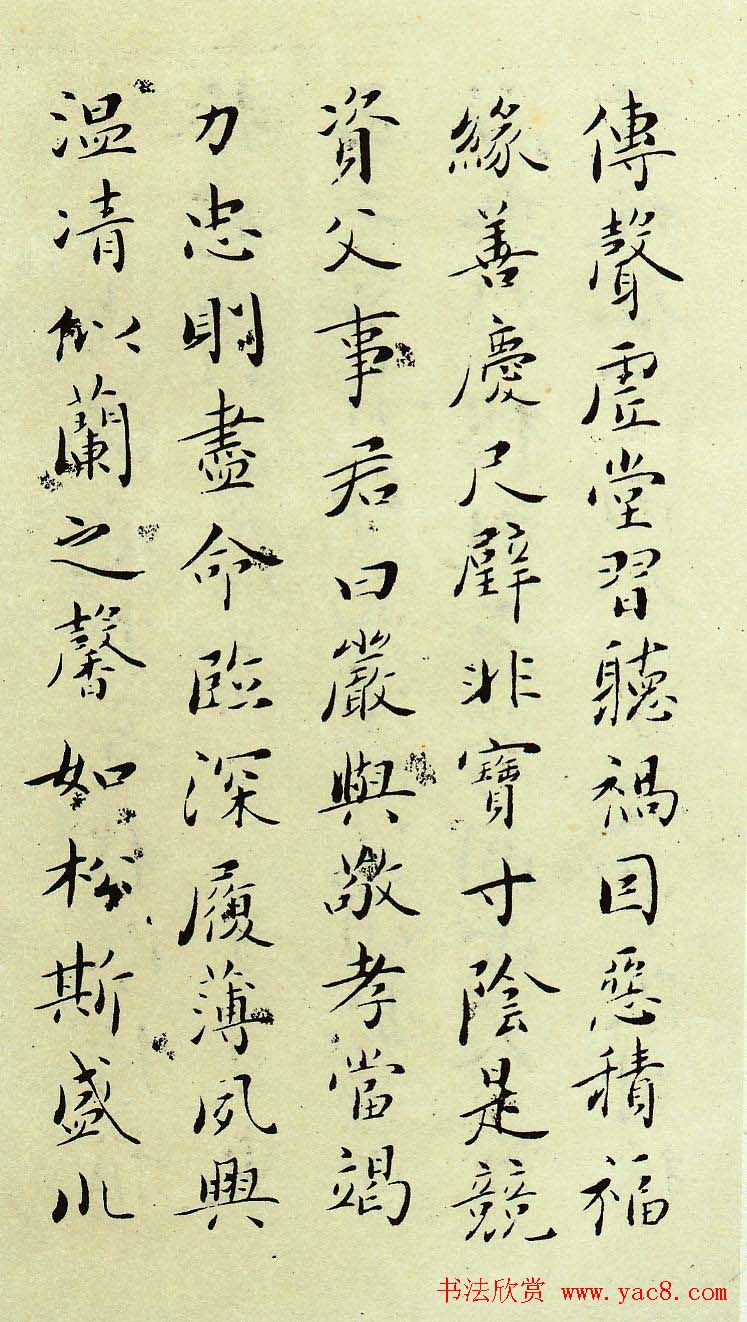 傳聲虛堂習聽禍因惡積福
緣善慶尺璧非寶寸陰是競
資父事君曰嚴與敬孝當竭
力忠則盡命臨深履薄夙興
温凊似蘭之馨如松斯盛川
书法欣赏 www.yac8.com